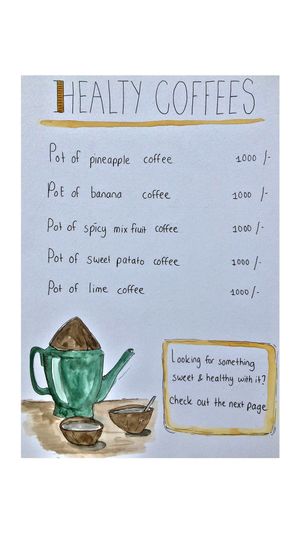 HEALTY COFFEES
Pot of pineapple coffee 1000 /-
Pot of banana coffee 1000 /-
Pot of spicy mix fruit coffee 1000 /-
Pot of sweet patato coffee 1000 /-
Pot of lime coffee 1000 /-
Looking for something
sweet & healthy with it?
Check out the next page